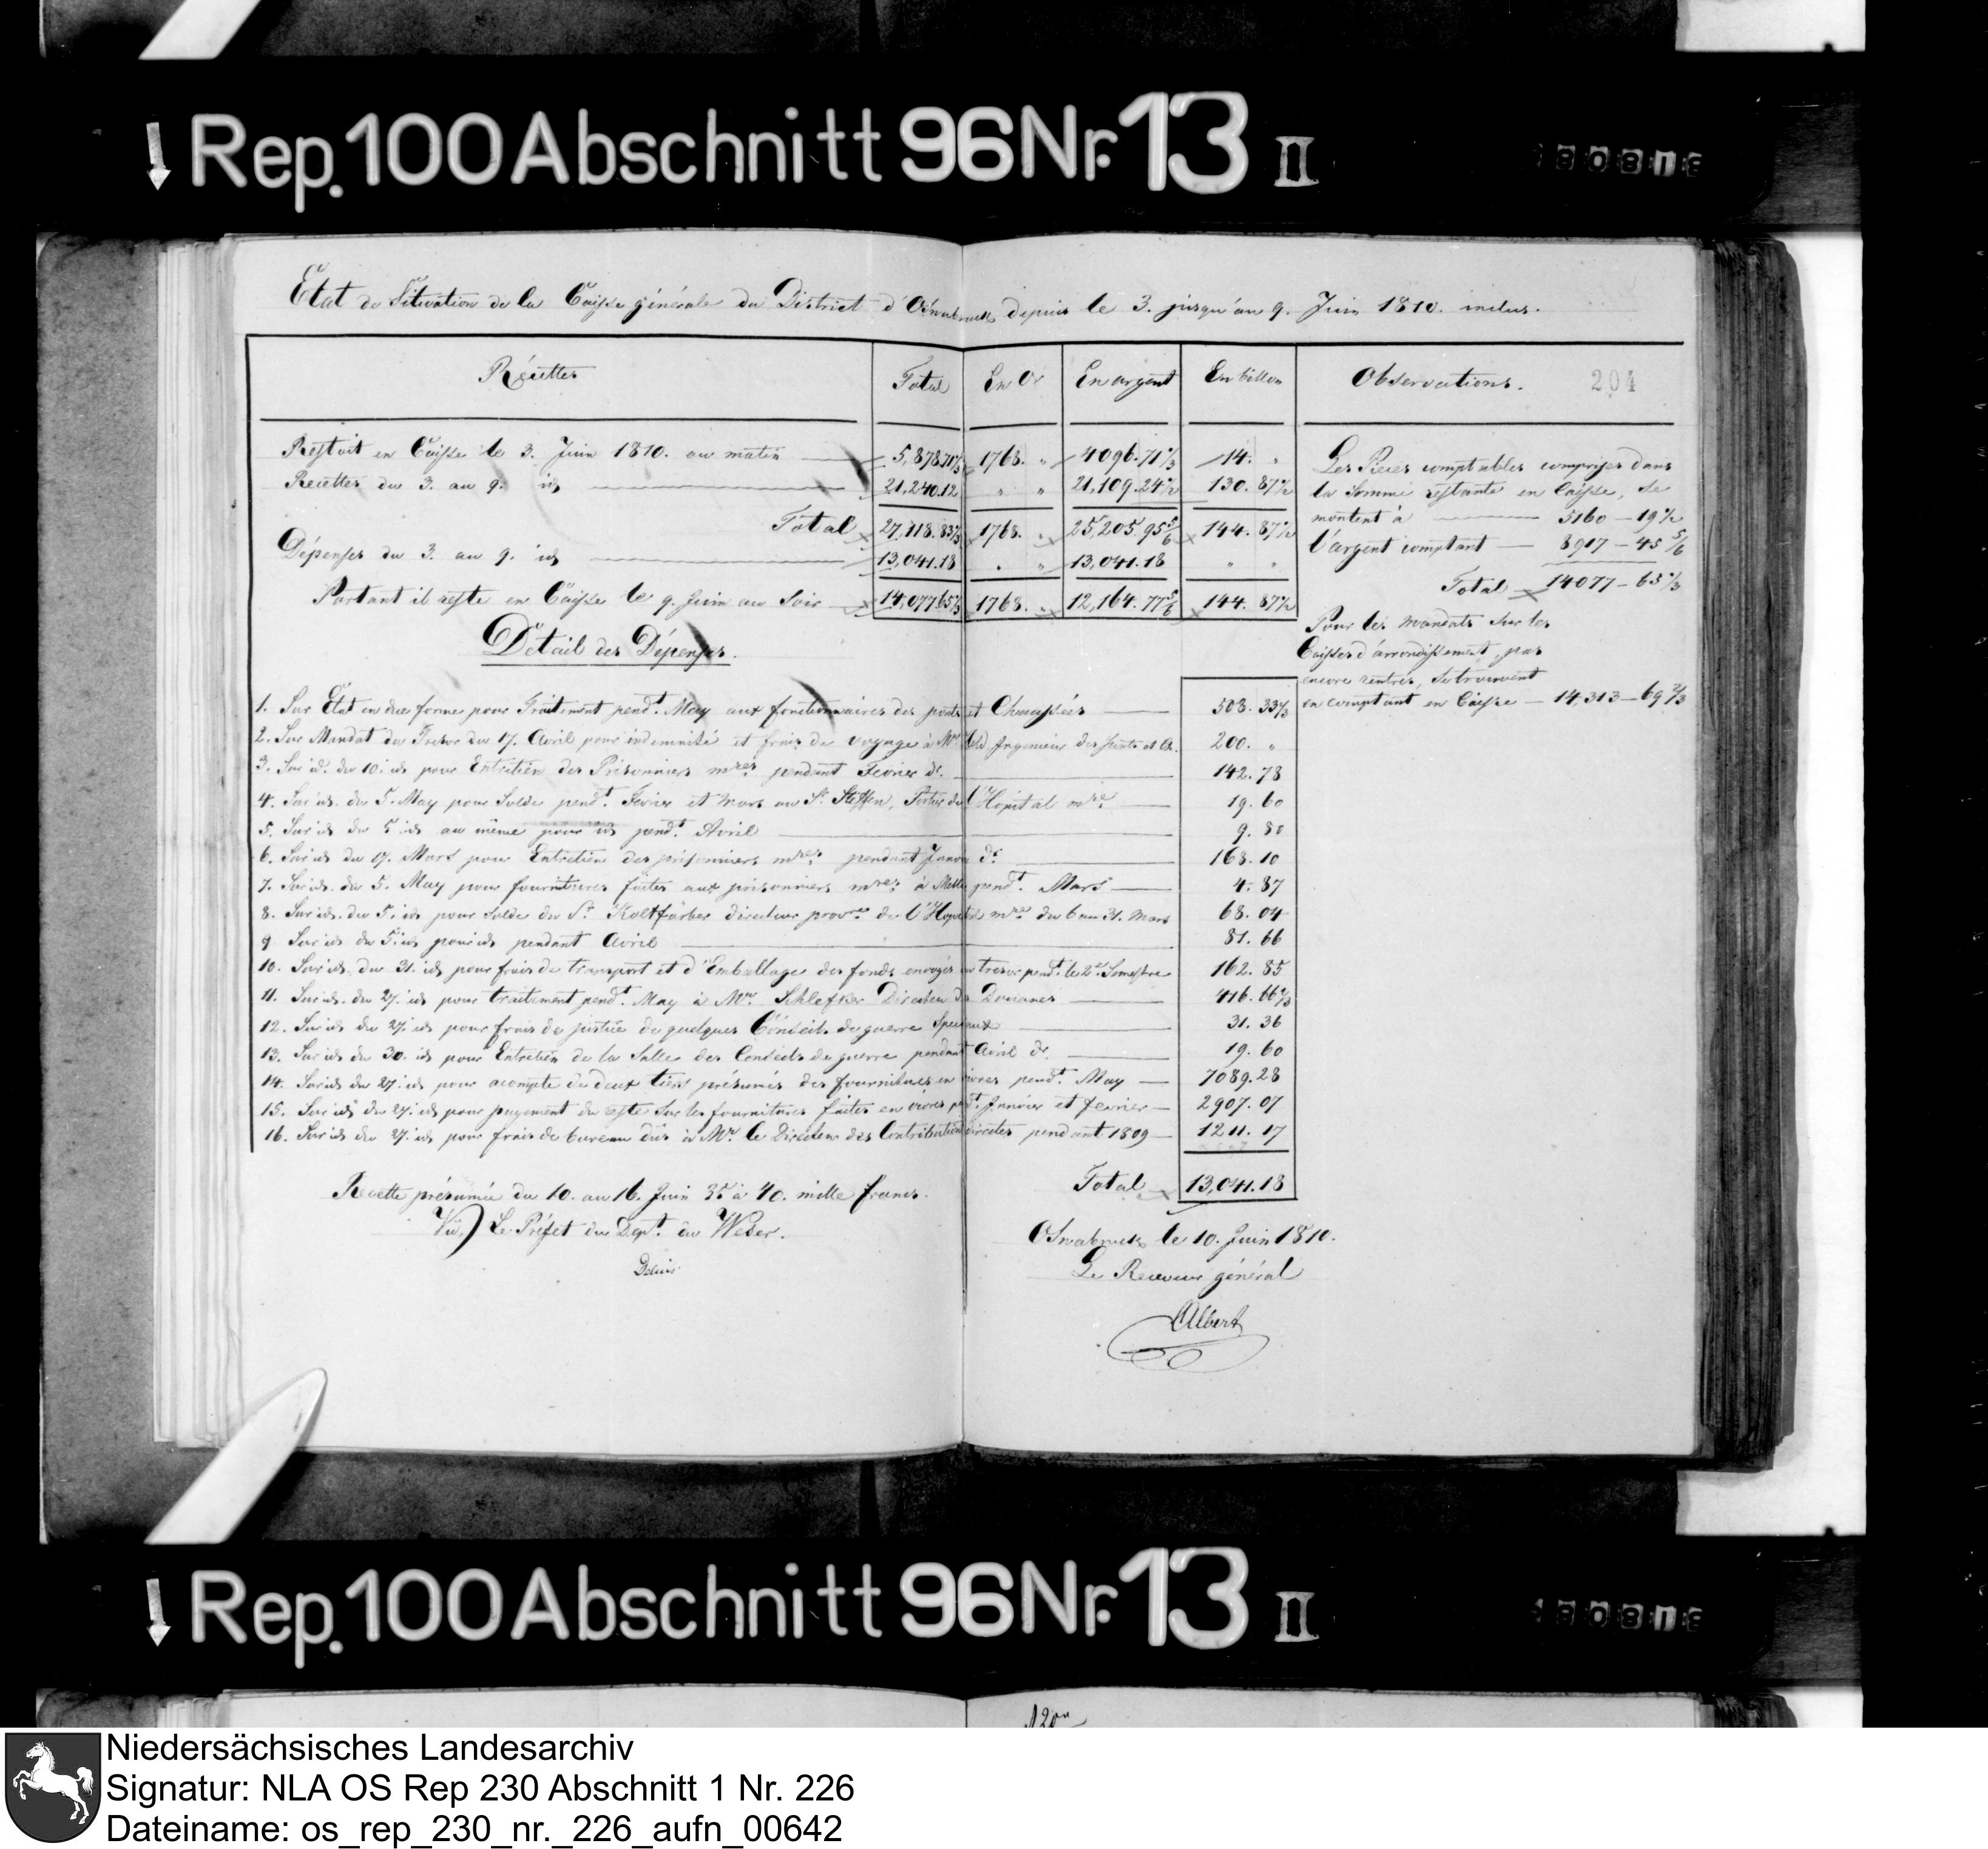 Rep. 100 Abschnitt 96 Nr. 13 II
Etat de Situation de la Caisse générale du District d'Osnabruck depuis le 3. jusqu'au 9. Juin 1810. inclus.
Récettes Total En Or En argent En billon Observations. 204
Restoit en Caisse le 3. Juin 1810. au matin 5,878.71 1/3 1768. „ 4096.71 1/3 14. „
Recettes du 3. au 9. id 21,240.12 „ „ 21,109.24 1/2 130. 87 1/2
Total 27,118.83 1/3 1768. „ 25,205.95 5/6 144. 87 1/2
Dépenses du 3. au 9. id 13,041.18 „ „ 13,041.18 „ „
Partant il reste en Caisse le 9. Juin au Soir 14,077.65 1/3 1768. „ 12,164.77 5/6 144. 87 1/2
Les Pieces comptables comprises dans
la Somme restante en Caisse, se
montent à 5160 — 19 1/2
L'argent comptant — 8917 — 45 5/6
Total 14077 — 65 1/3
Pour les mandats sur les
Caisses d'arrondissement, pas
encore rentrés, se trouvent
en comptant en Caisse — 14,313 — 69 2/3
Détail des Dépenses.
1. Sur Etat en due forme pour Traitement pendt. May aux fonctionnaires des ponts et Chaussées 508. 33 1/3
2. Sur Mandat du Tresor du 17. Avril pour indemnité et frais de voyage à Mr. Ingenieur des ponts et Ch. 200. „
3. Sur id. du 10. id pour Entretien des Prisonniers mres pendant Fevrier dr. 142. 78
4. Sur id. du 5. May pour Solde pendt. Fevrier et Mars au Sr. Steffen, Portier de l'Hopital mre 19. 60
5. Sur id du 5 id au même pour id pendt. Avril 9. 80
6. Sur id du 17. Mars pour Entretien des prisonniers mres pendant Janvr dr. 168. 10
7. Sur id. du 5. May pour fournitures faites aux prisonniers mres à Melle pendt. Mars 4. 87
8. Sur id. du 5. id pour Solde du Sr. Koltfärber directeur provre de l'Hopital mre du 6 au 31. Mars 68. 04
9. Sur id du 5. id pour id pendant Avril 81. 66
10. Sur id. du 31. id pour frais de transport et d'Emballage des fonds envoyés au tresor pendt. le 2d. Semestre 162. 85
11. Sur id. du 27. id pour traitement pendt. May à Mr. Schlefker Directeur des Douanes 416. 66 2/3
12. Sur id du 27. id pour frais de justice de quelques Conseils de guerre Speciaux 31. 36
13. Sur id du 30. id pour Entretien de la Salle des Conseils de guerre pendant Avril dr. 19. 60
14. Sur id du 27. id pour acompte de deux tiers présumés des fournitures en vivres pendt. May 7089.28
15. Sur id du 27. id pour payement du reste sur les fournitures faites en vivres pendt. Janvier et fevrier 2907. 07
16. Sur id du 27. id pour frais de bureau dûs à Mr. le Directeur des Contributions directes pendant 1809 1211. 17
Total 13,041.18
Recette présumée du 10. au 16. Juin 35 à 40. mille francs.
Vu, Le Préfet du Dept. du Weser.
Delius
Osnabruck le 10. Juin 1810.
Le Receveur général
Albert
Rep. 100 Abschnitt 96 Nr. 13 II
Niedersächsisches Landesarchiv
Signatur: NLA OS Rep 230 Abschnitt 1 Nr. 226
Dateiname: os_rep_230_nr._226_aufn_00642